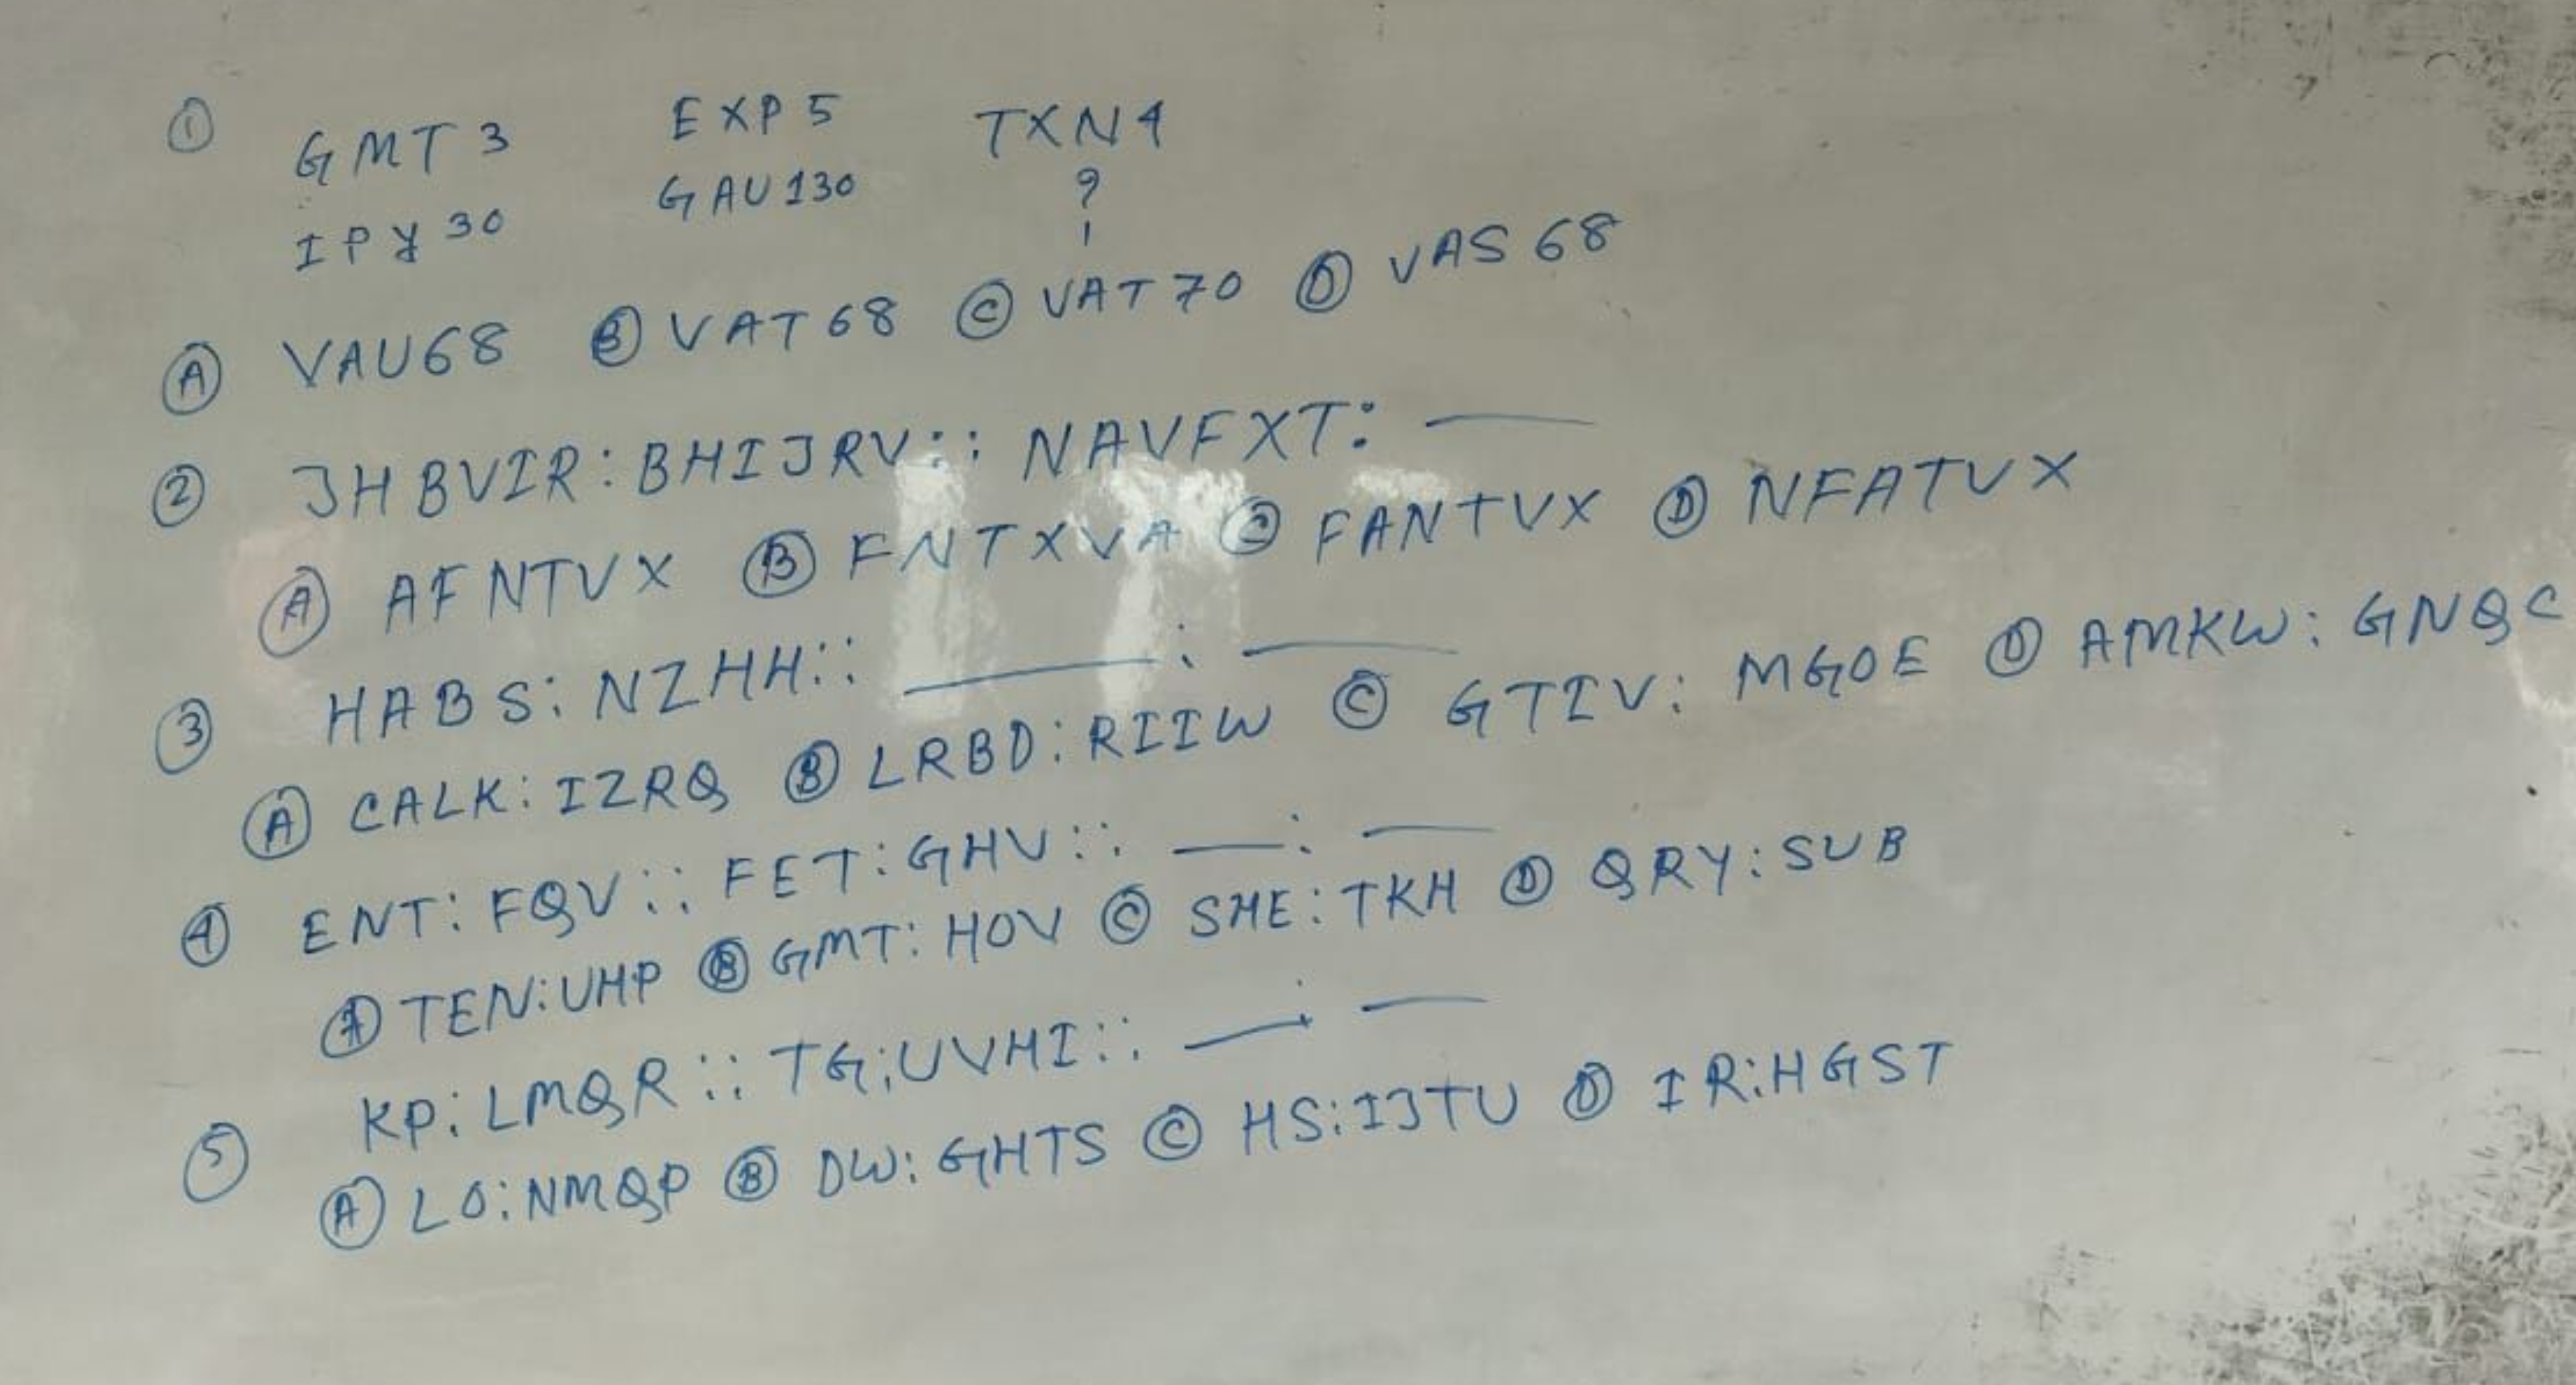 ① GMT 3 EXP 5 TXN4
IPY 30 GAU 130 ?
Ⓐ VAU68 Ⓑ VAT 68 Ⓒ VAT 70 Ⓓ VAS 68
② JHBVIR : BHIJRV :: NAVFXT : ___
Ⓐ AFNTVX Ⓑ FNTXVA Ⓒ FANTVX Ⓓ NFATVX
③ HABS : NZHH :: ___ : ___
Ⓐ CALK : IZRQ Ⓑ LRBD : RIIW Ⓒ GTIV : MGOE Ⓓ AMKW : GNQC
④ ENT : FQV :: FET : GHV :: ___ : ___
Ⓐ TEN : UHP Ⓑ GMT : HOV Ⓒ SHE : TKH Ⓓ QRY : SUB
⑤ KP : LMQR :: TG : UVHI :: ___ : ___
Ⓐ LO : NMQP Ⓑ DW : GHTS Ⓒ HS : IJTU Ⓓ IR : HGST